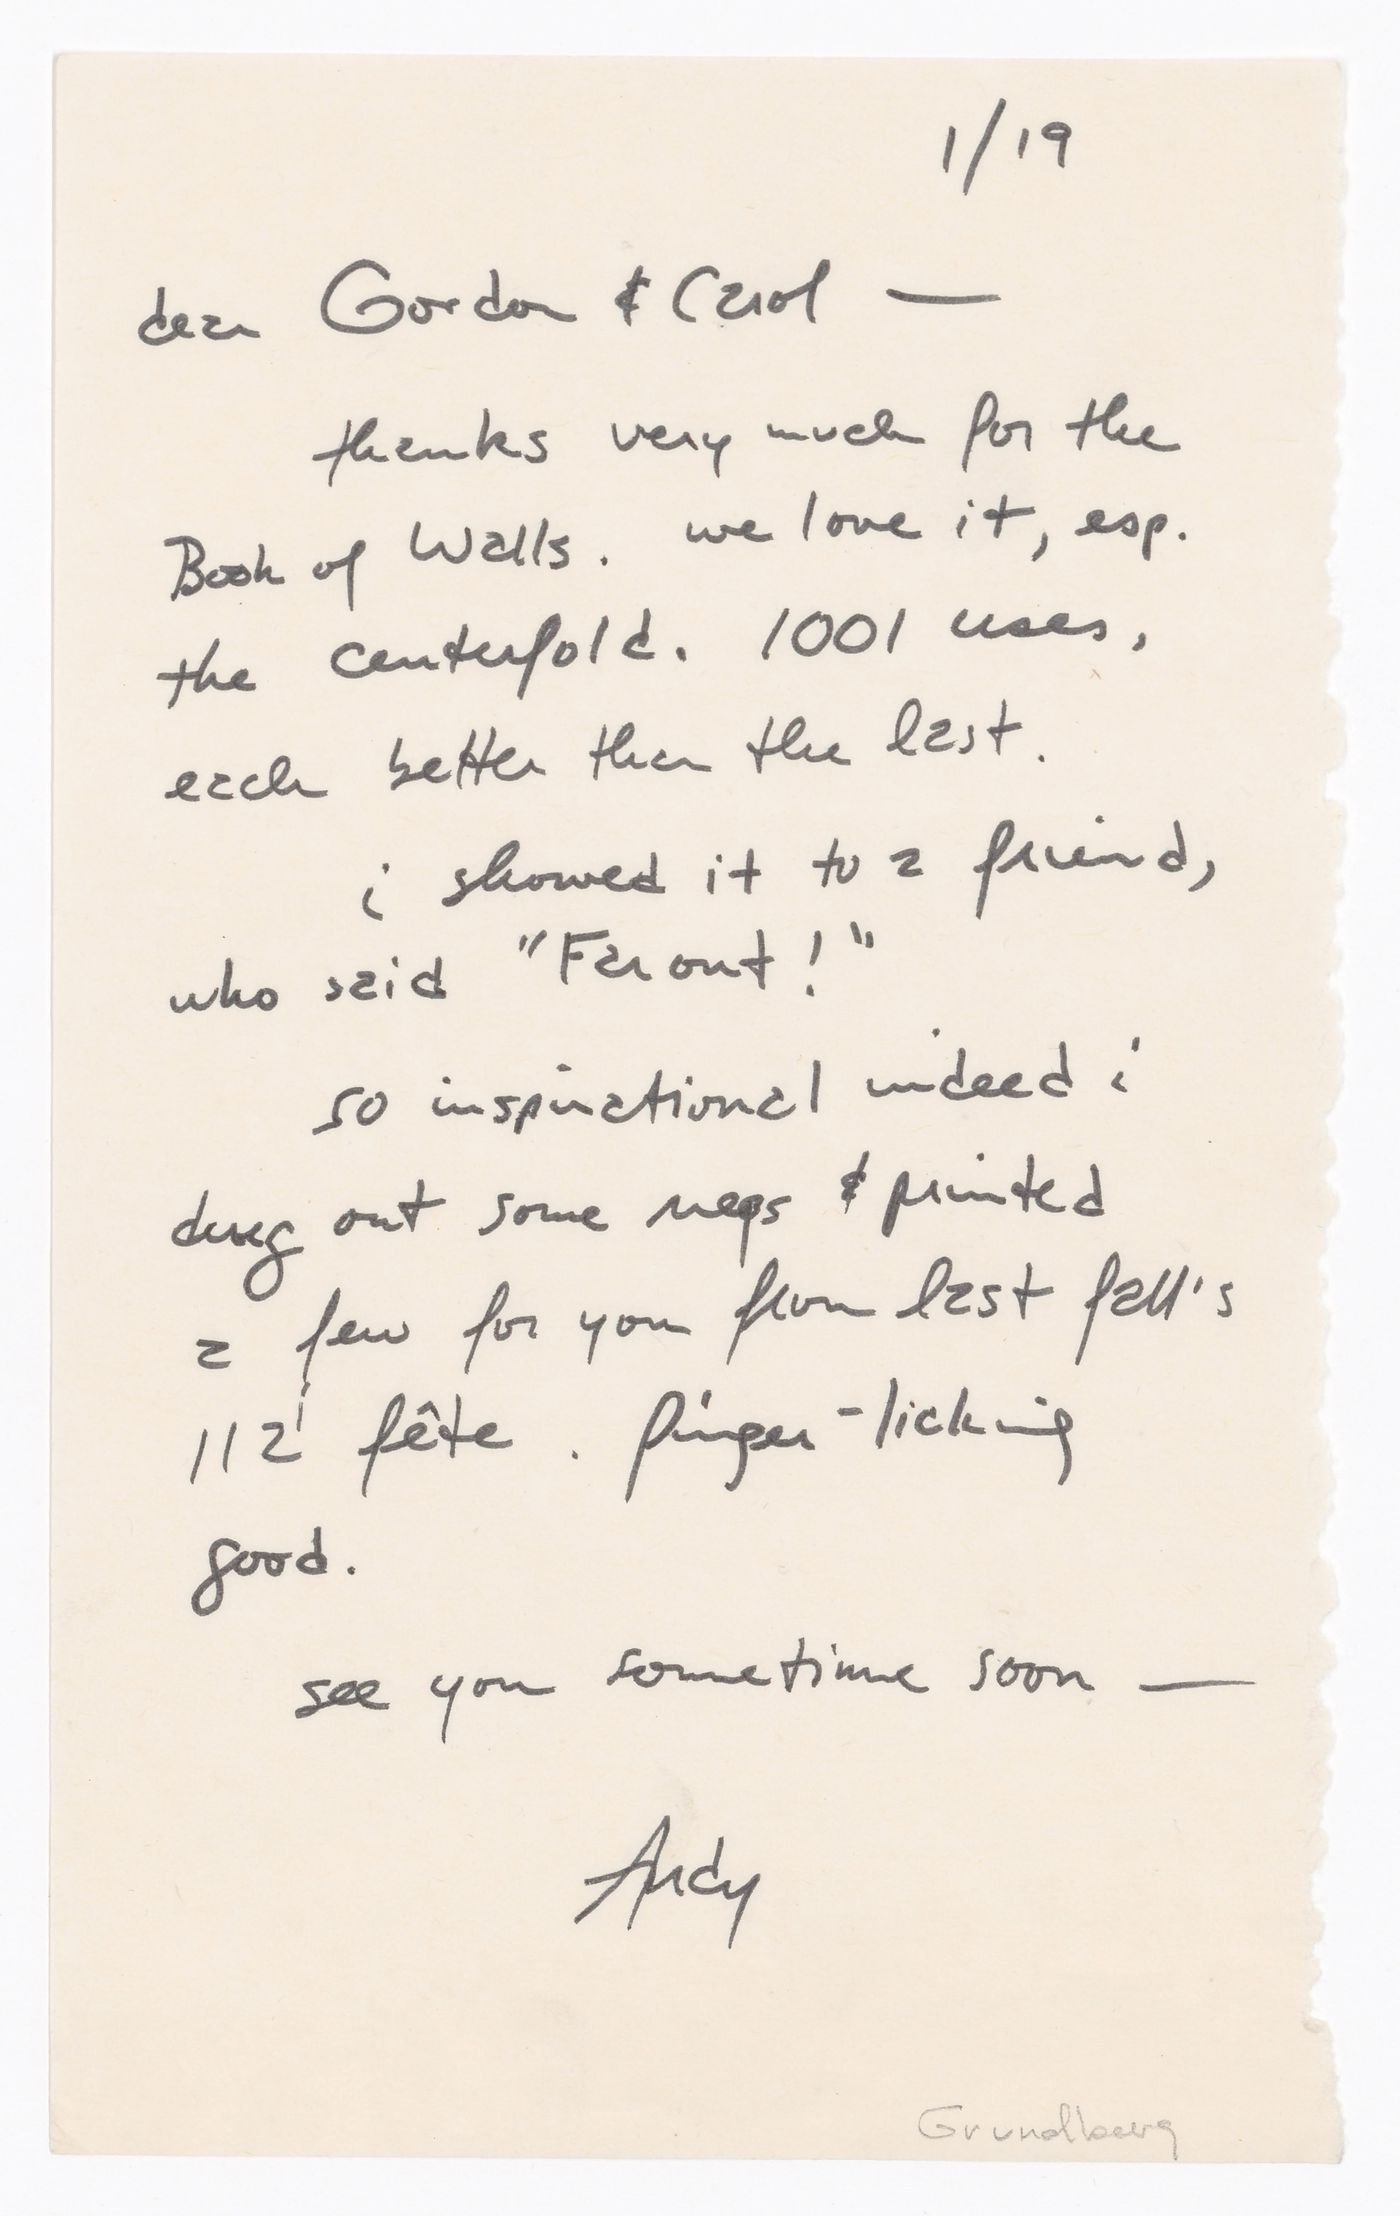 1/19
dear Gordon & Carol —
thanks very much for the
Book of Walls. we love it, esp.
the centerfold. 1001 uses,
each better than the last.
i showed it to a friend,
who said "Far out!"
so inspirational indeed i
drug out some negs & printed
a few for you from last fall's
112' fête. finger-licking
good.
see you sometime soon —
Andy
Grundberg